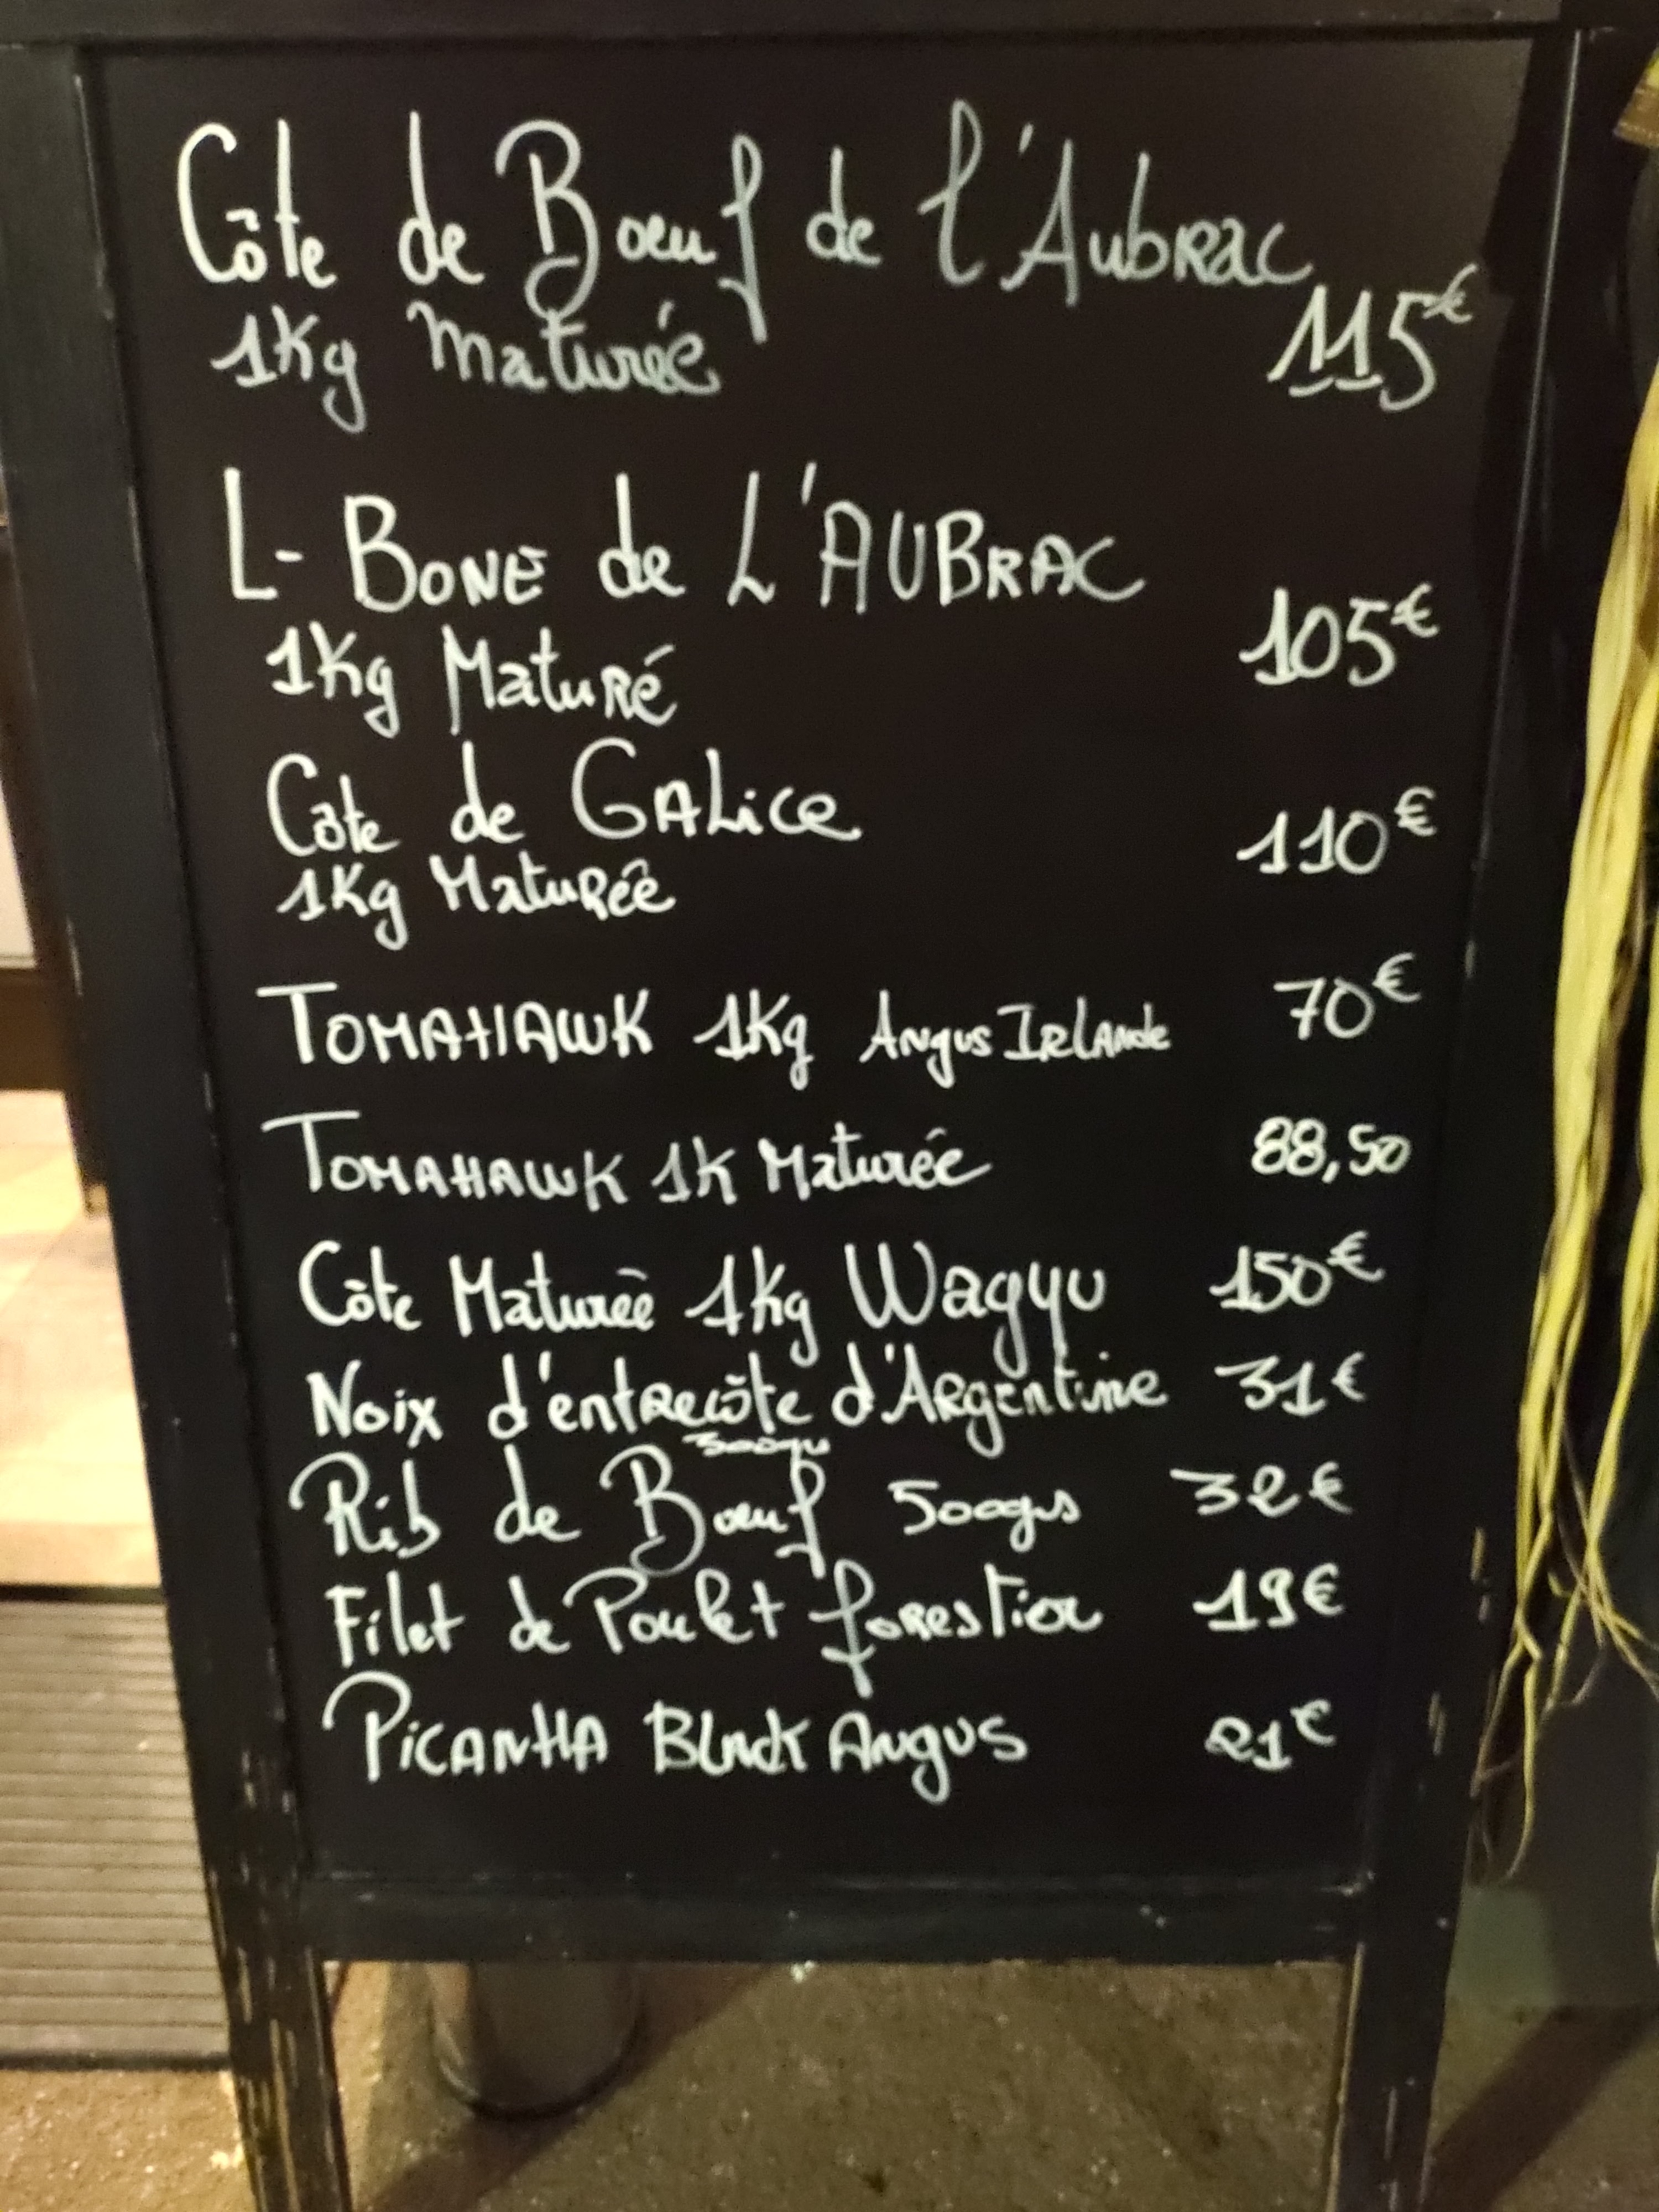 Côte de Boeuf de l'Aubrac
1Kg Maturée 115€
L-BONE de L'AUBRAC
1Kg Maturé 105€
Côte de GALice 110€
1Kg Maturée
TOMAHAWK 1Kg Angus IRLAnde 70€
TOMAHAWK 1K Maturée 88,50
Côte Maturée 1Kg Wagyu 150€
Noix d'entrecôte d'Argentine 31€
300grs
Rib de Boeuf 500grs 32€
Filet de Poulet forestier 19€
PicANHA BLACK Angus 21€